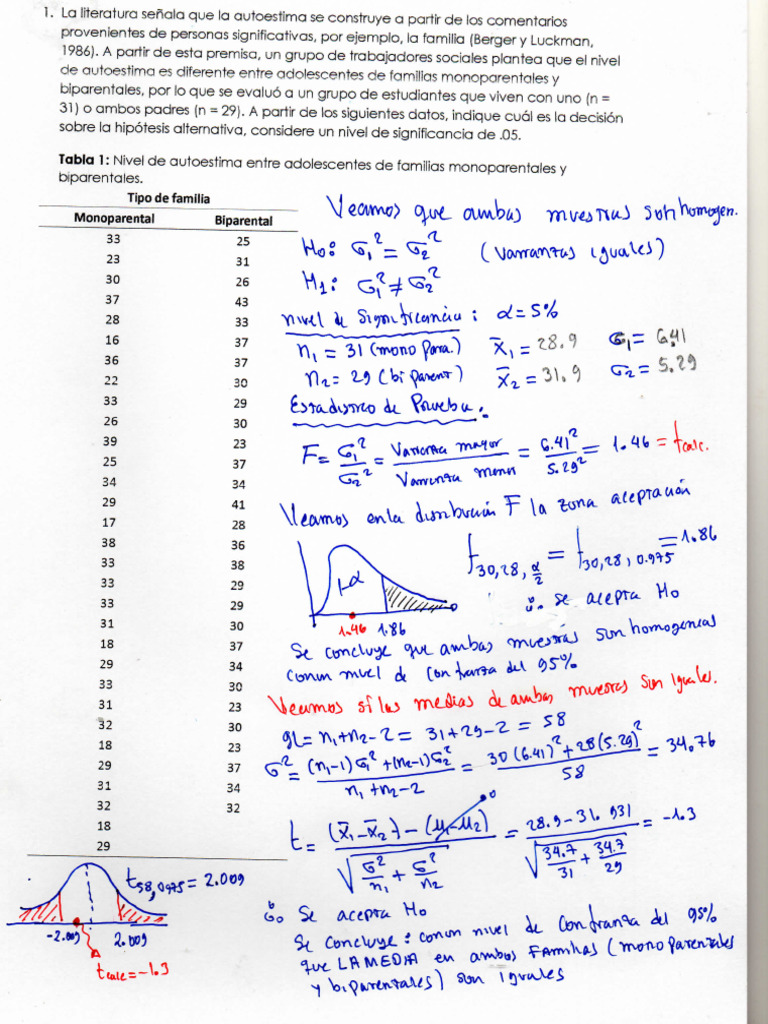 1. La literatura señala que la autoestima se construye a partir de los comentarios
provenientes de personas significativas, por ejemplo, la familia (Berger y Luckman,
1986). A partir de esta premisa, un grupo de trabajadores sociales plantea que el nivel
de autoestima es diferente entre adolescentes de familias monoparentales y
biparentales, por lo que se evaluó a un grupo de estudiantes que viven con uno (n =
31) o ambos padres (n = 29). A partir de los siguientes datos, indique cuál es la decisión
sobre la hipótesis alternativa, considere un nivel de significancia de .05.
Tabla 1: Nivel de autoestima entre adolescentes de familias monoparentales y
biparentales.
Tipo de familia
Monoparental Biparental
33 25
23 31
30 26
37 43
28 33
16 37
36 37
22 30
33 29
26 30
39 23
25 37
34 34
29 41
17 28
38 36
33 38
33 29
33 29
31 30
18 37
29 34
33 30
31 23
32 30
18 23
29 37
31 34
32 32
18
29
Veamos que ambas muestras son homogen.
H₀: σ₁² = σ₂² (Varianzas iguales)
H₁: σ₁² ≠ σ₂²
nivel de significancia: α = 5%
n₁ = 31 (mono para.) x̄₁ = 28.9 σ₁ = 6.41
n₂ = 29 (bi parent) x̄₂ = 31.9 σ₂ = 5.29
Estadístico de Prueba:
F = σ₁²/σ₂² = Varianza mayor/Varianza menor = 6.41²/5.29² = 1.46 = tcalc.
Veamos en la distribución F la zona aceptación
1-α
1.46 1.86
f30,28,α/2 = f30,28,0.975 = 1.86
∴ se acepta H₀
Se concluye que ambas muestras son homogeneas
con un nivel de confianza del 95%
Veamos si las medias de ambas muestras son iguales.
gL = n₁+n₂-2 = 31+29-2 = 58
σ² = (n₁-1)σ₁² + (n₂-1)σ₂² / n₁+n₂-2 = 30(6.41)²+28(5.29)² / 58 = 34.76
t = (x̄₁-x̄₂) - (μ₁-μ₂) / √(σ²/n₁ + σ²/n₂) = 28.9-31.931 / √(34.7/31 + 34.7/29) = -1.3
0
t58,0.975 = 2.009
-2.009 2.009
tcalc = -1.3
∴ Se acepta H₀
Se concluye: con un nivel de confianza del 95%
que LA MEDIA en ambos Familias (mono parentales
y biparentales) son iguales